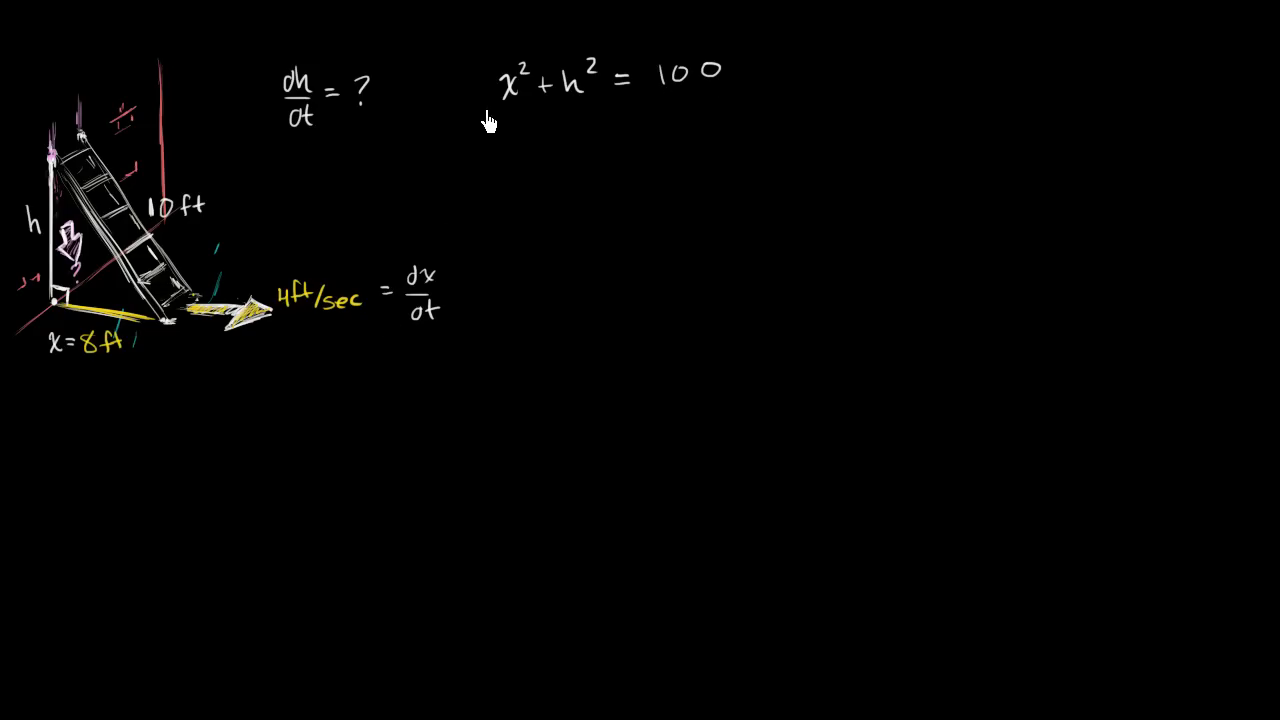 dh/dt = ?
x² + h² = 100
10 ft
h
?
4ft/sec = dx/dt
x = 8ft